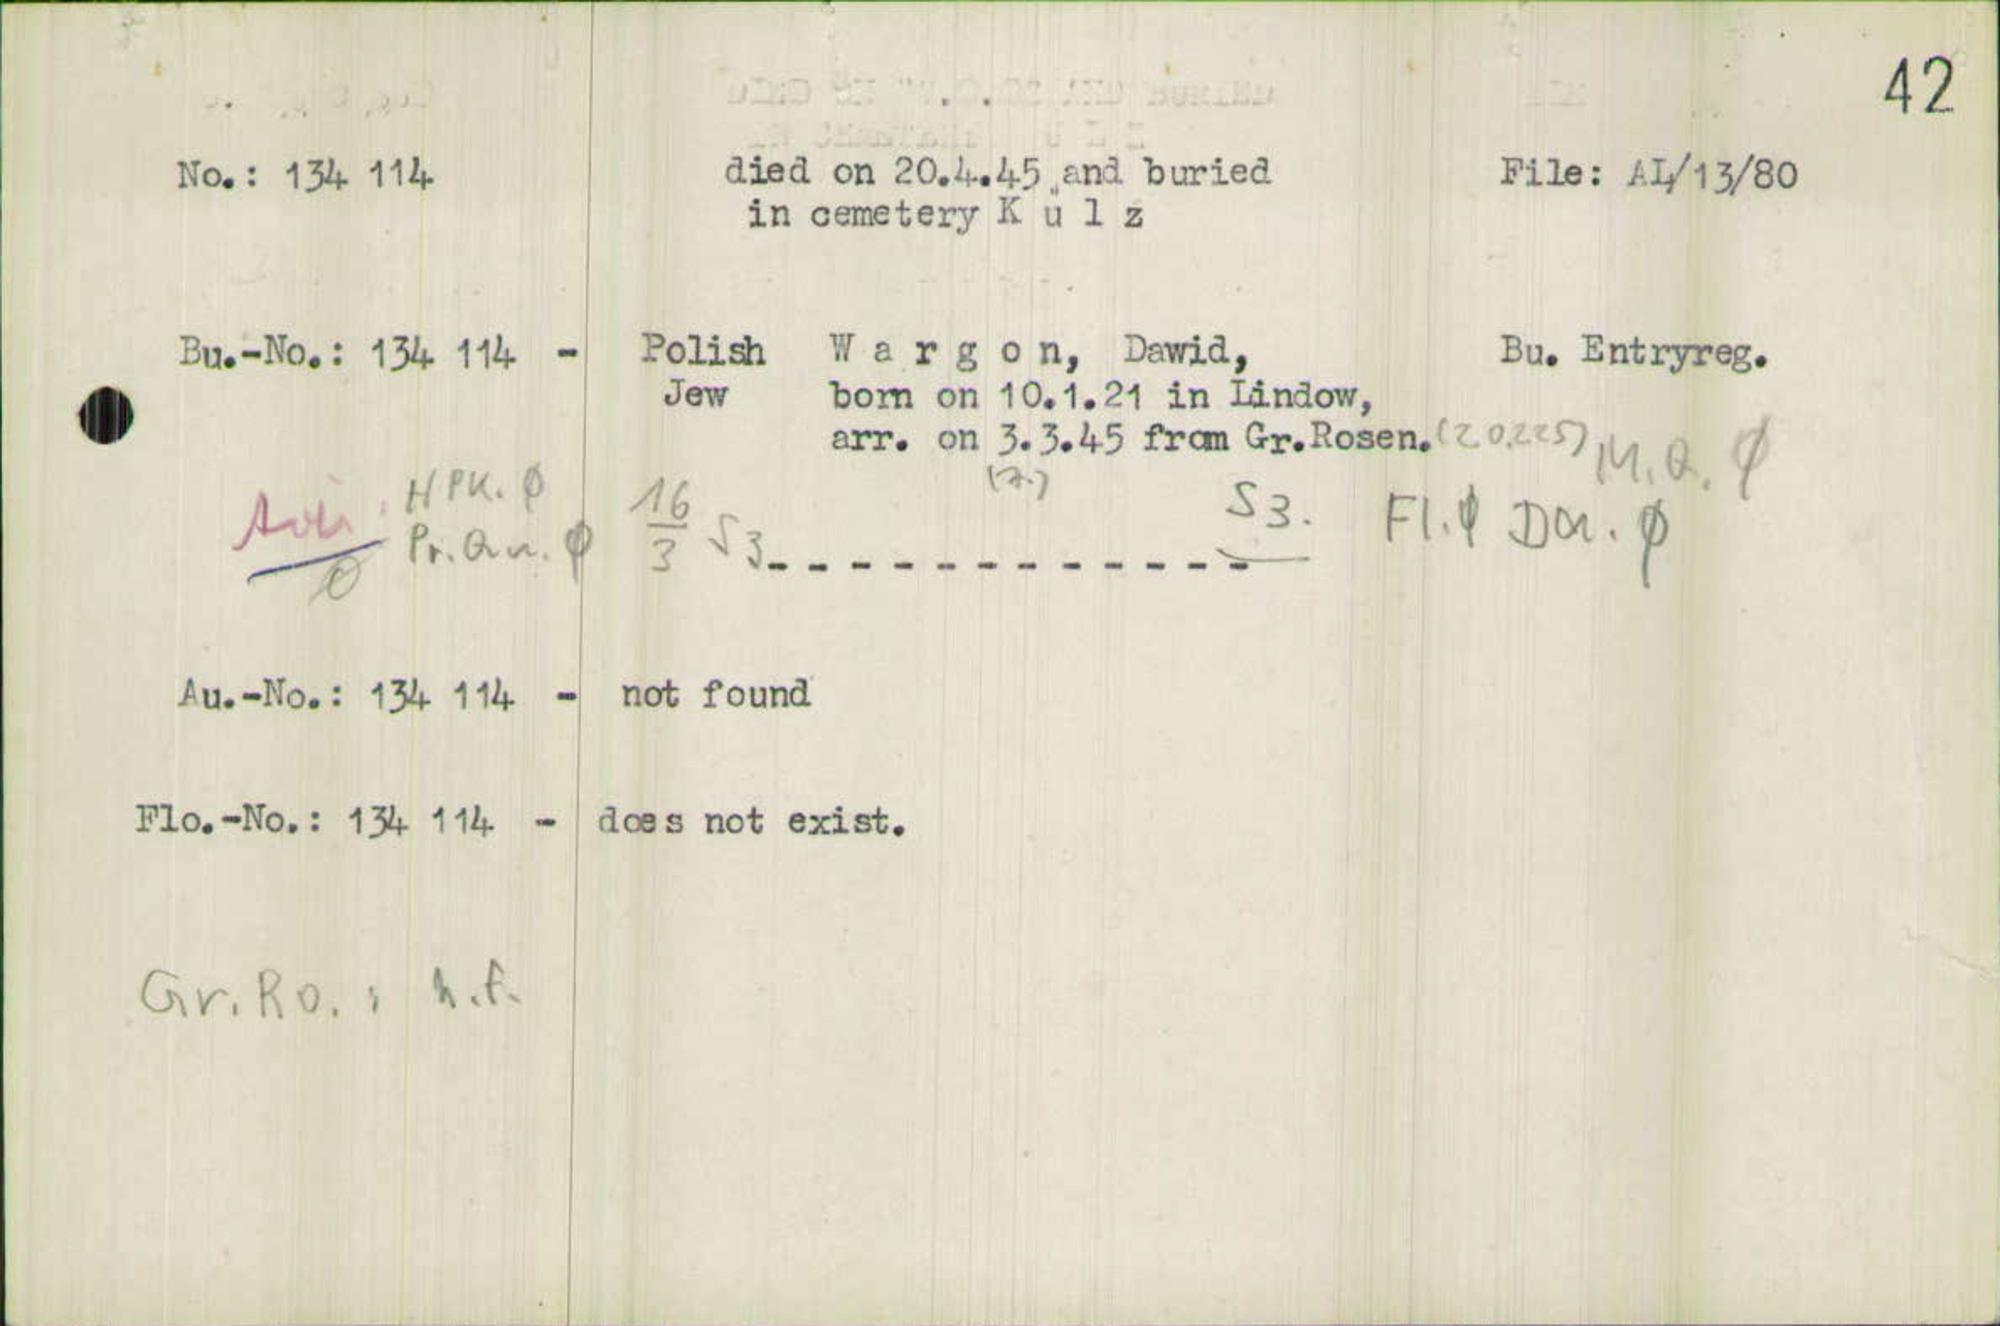 42
No.: 134 114 died on 20.4.45 and buried File: AL/13/80
in cemetery K u l z
Bu.-No.: 134 114 - Polish W a r g o n, Dawid, Bu. Entryreg.
Jew born on 10.1.21 in Lindow,
arr. on 3.3.45 from Gr.Rosen. (20.225) M.Q. Ø
HPK. Ø 16/3 S3 S3. Fl. Ø Da. Ø
Pr.Qu. Ø
Au.-No.: 134 114 - not found
Flo.-No.: 134 114 - does not exist.
Gr.Ro.: n.f.